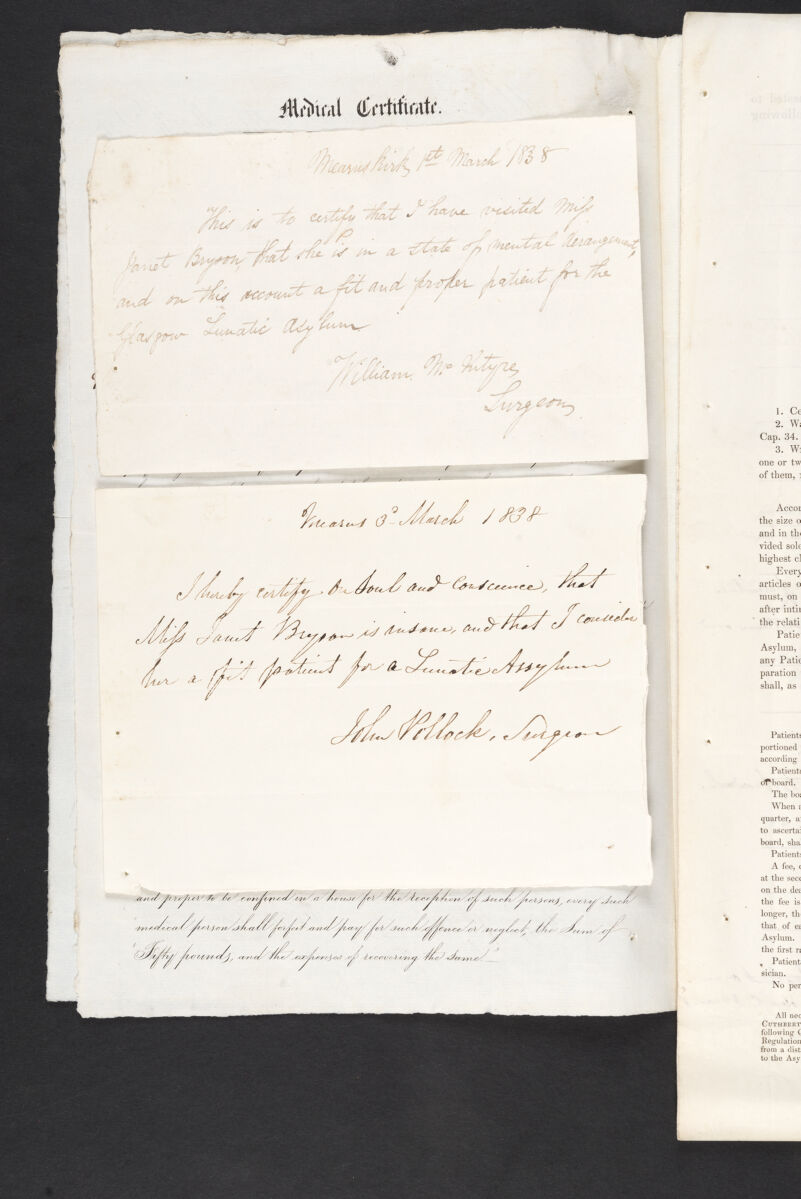 Medical Certificate.
Mearnskirk 1st March 1838
This is to certify that I have visited Miss
Janet Bryson, that she is in a state of mental derangement,
and on this account a fit and proper patient for the
Glasgow Lunatic Asylum
William McIntyre,
Surgeon,
Mearns 3d March 1838
I hereby certify on Soul and Conscience, that
Miss Janet Bryson is insane, and that I consider
her a fit patient for a Lunatic Assylum
John Pollock, Surgeon
and proper to be confined in a house for the reception of such persons, every such
medical person shall forfeit and pay for such offence or neglect, the Sum of
Fifty pounds, and the expenses of recovering the same
1. Ce
2. Wa
Cap. 34.
3. W
one or tw
of them,
Accor
the size o
and in the
vided sole
highest cl
Every
articles o
must, on
after intin
the relati
Patie
Asylum,
any Patie
paration
shall, as
Patients
portioned
according
Patients
or board.
The boa
When a
quarter, a
to ascertai
board, sha
Patients
A fee, o
at the seco
on the dea
the fee is
longer, th
that of ea
Asylum.
the first ra
Patient
sician.
No per
All nec
CUTHBERT
following C
Regulation
from a dist
to the Asy